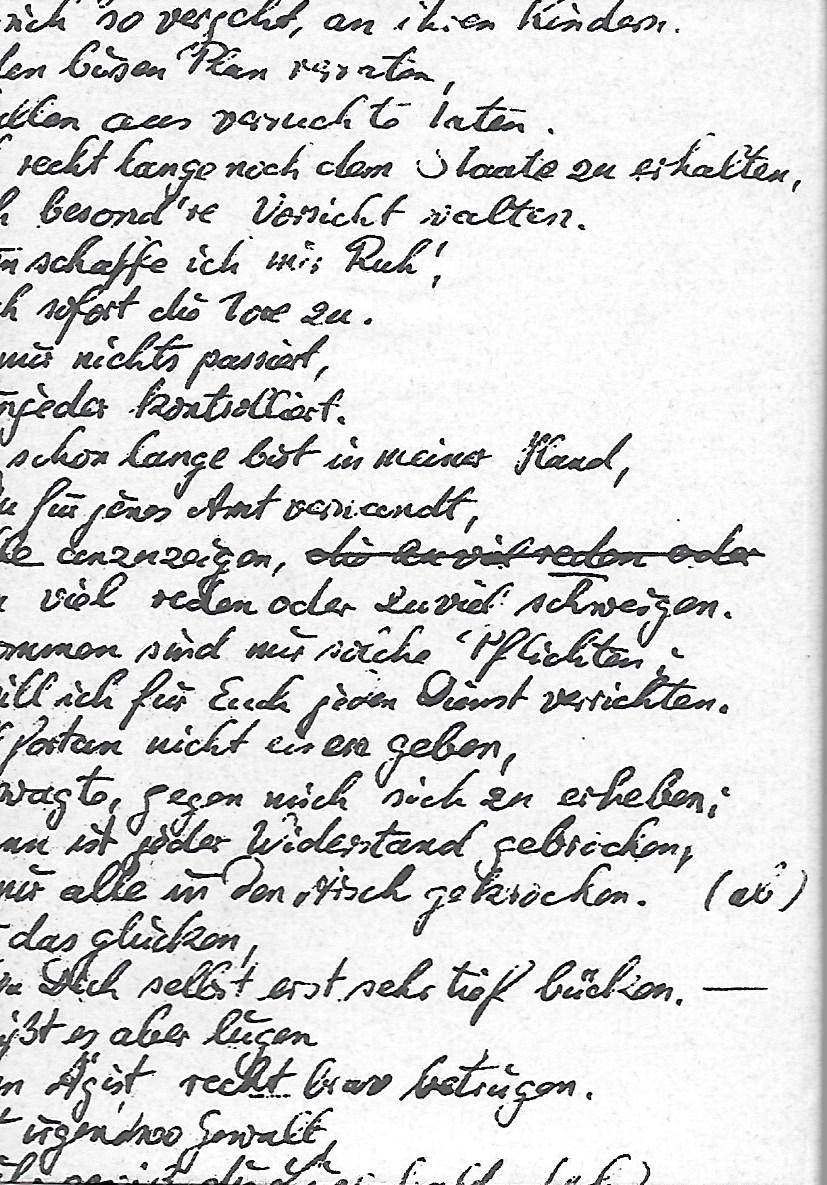 sich so vergeht, an ihren Kindern.
den bösen Plan verraten,
aus verruchte Taten.
recht lange noch dem Staate zu erhalten,
h besond're Vorsicht walten.
schaffe ich mir Ruh!
ch sofort die Tore zu.
mir nichts passiert,
jeder kontrolliert.
schon lange bist in meiner Hand,
für jenes Amt verwandt,
le anzuzeigen, die zu viel reden oder
viel reden oder zuviel schweigen.
ommen sind mir solche Pflichten;
ill ich für Euch jeden Dienst verrichten.
fortan nicht einen geben,
wagte, gegen mich sich zu erheben;
nn ist jeder Widerstand gebrochen,
mir alle in den Arsch gekrochen. (ab)
das glücken,
Dich selbst erst sehr tief bücken. —
ißt es aber lügen
n Ägist recht brav betrügen.
irgendwo Gewalt,